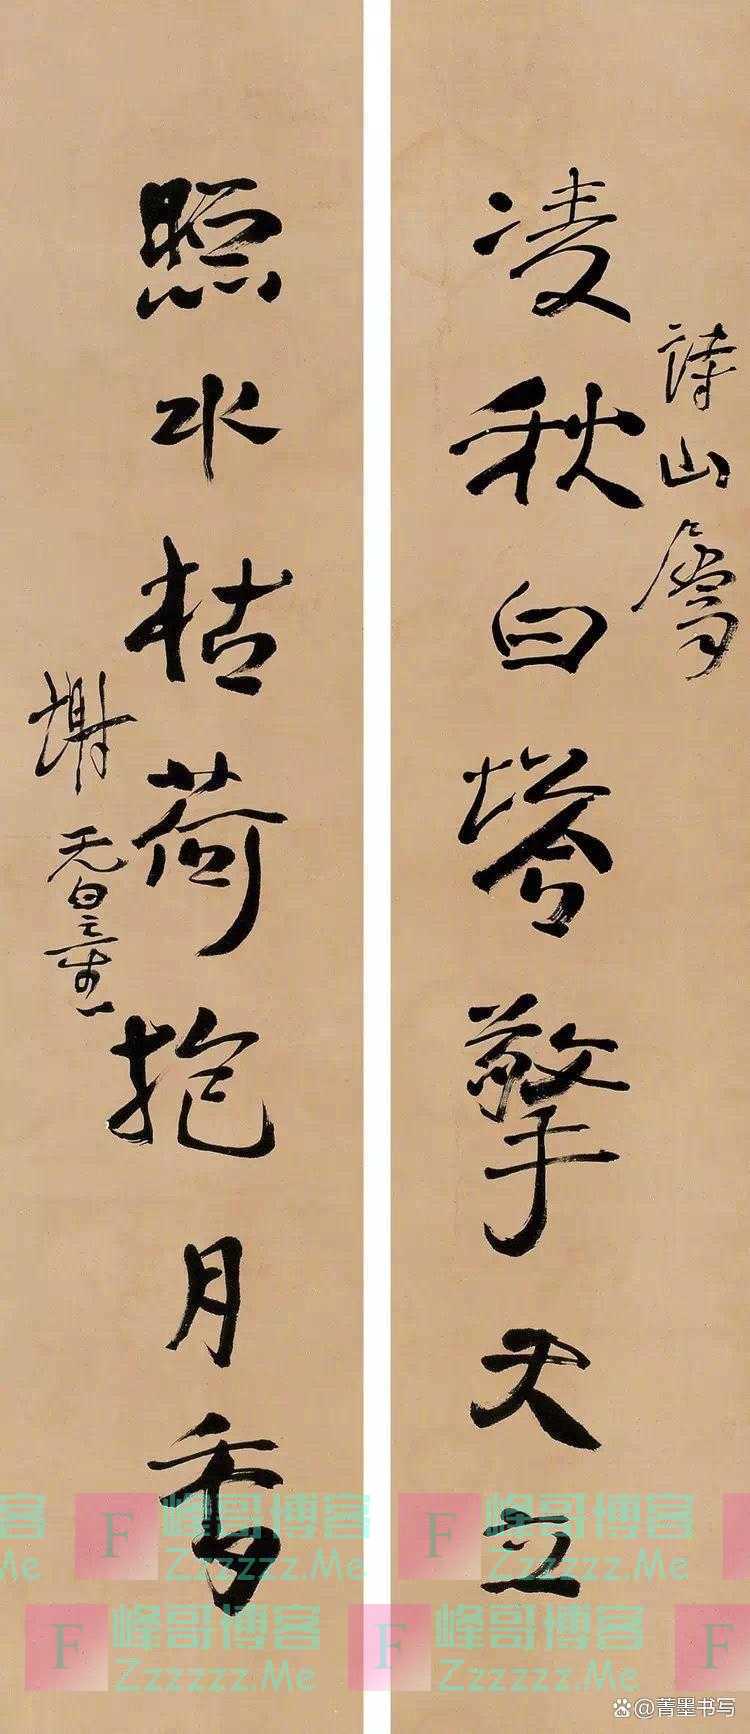 凌秋白塔擎天立
诗山属
照水枯荷抱月香
谢无量
峰哥博客 峰哥博客 峰哥博客
Zzzzzz.Me Zzzzzz.Me Zzzzzz.Me
F 峰哥博客 F 峰哥博客 F
Zzzzzz.Me Zzzzzz.Me
@菁墨书写